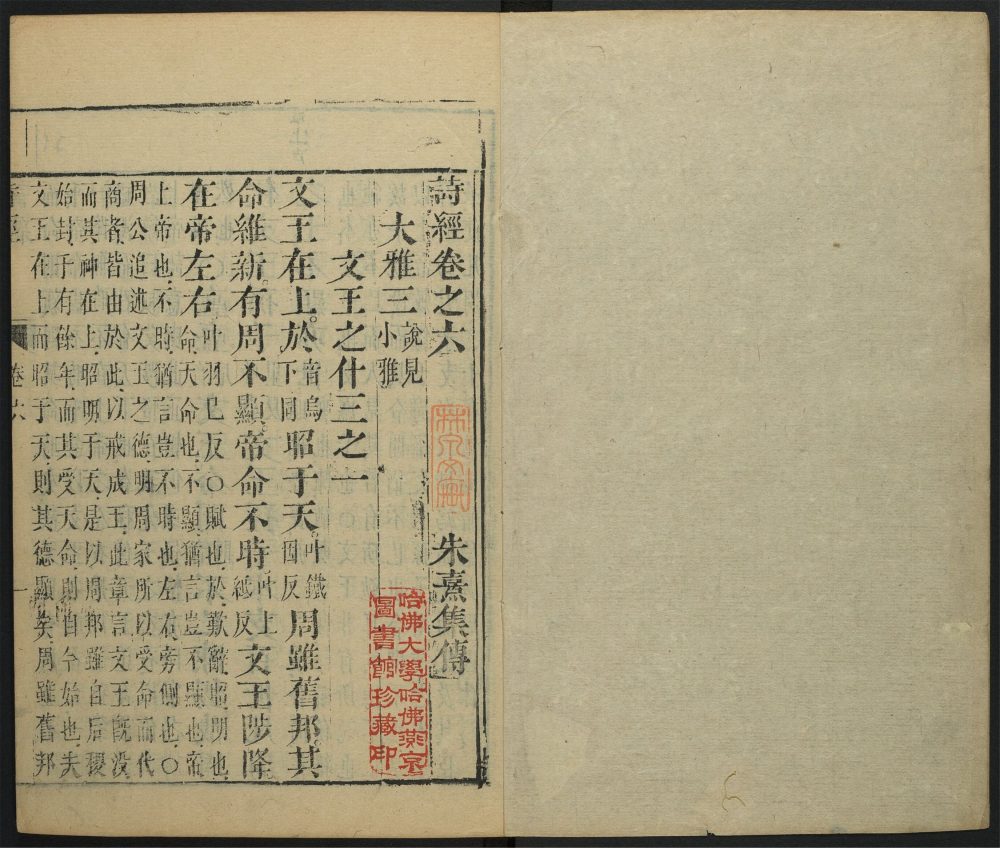 詩經卷之六
朱熹集傳
大雅三
說見
小雅
文王之什三之一
文王在上於
音烏
下同
昭于天
叶鐵
因反
周雖舊邦其
命維新有周不顯帝命不時
叶上
紙反
文王陟降
在帝左右
叶羽已反○賦也於歎辭昭明也
命天命也不顯猶言豈不顯也帝
上帝也不時猶言豈不時也左右旁側也○
周公追述文王之德明周家所以受命而代
商者皆由於此以戒成王此章言文王旣没
而其神在上昭明于天是以周邦雖自后稷
始封千有餘年而其受天命則自今始也夫
文王在上而昭于天則其德顯矣周雖舊邦
卷六
一
哈佛大學哈佛燕京
圖書館珍藏印